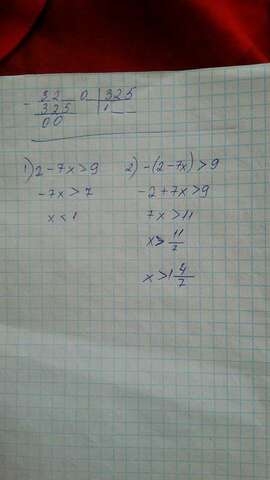 - 32 0 | 325
325 | 1
00
1) 2-7x>9
-7x>7
x<1
2) -(2-7x)>9
-2+7x>9
7x>11
x>11/7
x>1 4/7